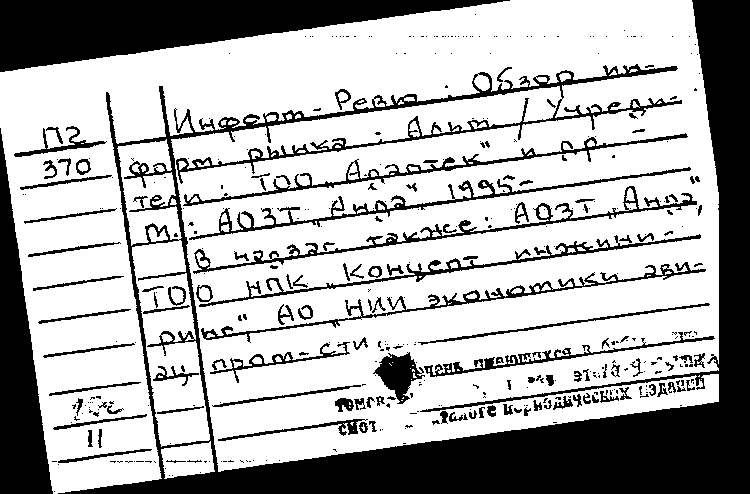 Информ-Ревю : Обзор ин-
П2
370
форм. рынка : Альм. / Учреди-
тели : ТОО „Адаптек" и др. -
М.: АОЗТ „Анда", 1995-
В надзаг. также: АОЗТ „Анда",
ТОО НПК „Концепт инжини-
ринг", АО „НИИ экономики ави-
ац. пром-сти
имеющихся в
томов,
смот. каталоге периодических изданий
11